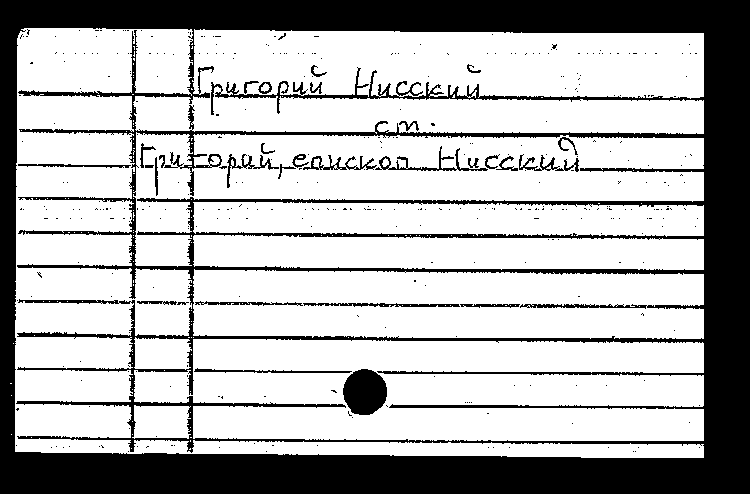 Григорий Нисский
ст.
Григорий, епископ Нисский